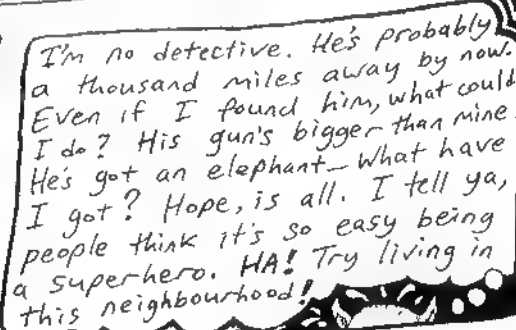 I'm no detective. He's probably
a thousand miles away by now.
Even if I found him, what could
I do? His gun's bigger than mine.
He's got an elephant—what have
I got? Hope, is all. I tell ya,
people think it's so easy being
a superhero. HA! Try living in
this neighbourhood!